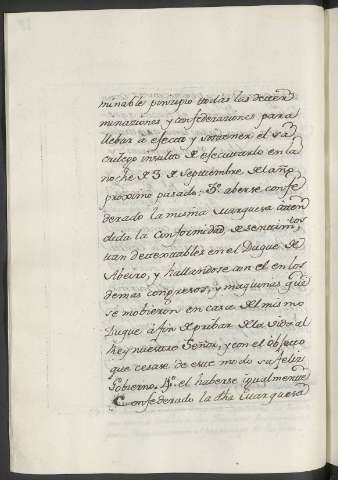 minable principio todas las deter.n
minaziones y confederaziones para
llebar a efecto y intentar el sa
crilego insulto q.e efecutaron en la
noche de 3 de Septiembre del año
proximo pasado: 3.º aberse confe
derado la misma Marquesa aten
dida la Conformidad de sentim.tos
tan detestables en el Duque de
Abeiro, y hallandose con el en los
demas congresos, y maquinas que
se mobieron en casa del mismo
Duque a fin de pribar de la vida al
Rey nuestro Señor, y con el objecto
que cesase de este modo su feliz
Gobierno. 4.º el haberse igualmente
Confederado la dha Marquesa